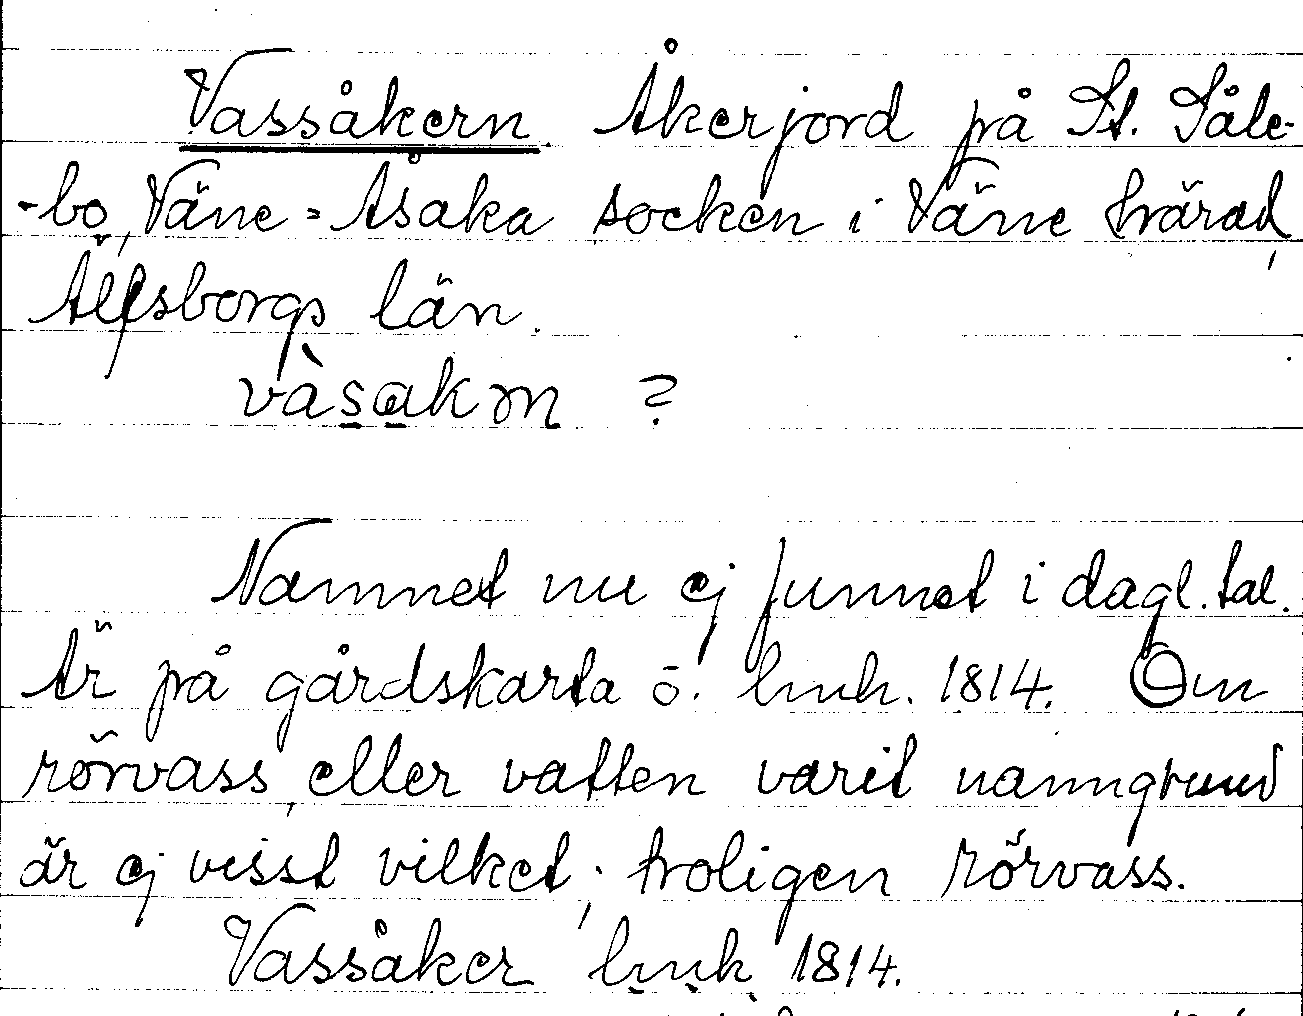 Vassåkern. Åkerjord på St. Såle-
-bo, Väne-Åsaka socken i Väne härad,
Älfsborgs län.
vàsakrn ?
Namnet nu ej funnet i dagl. tal.
Är på gårdskarta ö. lmh. 1814. Om
rörvass, eller vatten varit namngrund
är ej visst vilket; troligen rörvass.
Vassåker lmh 1814.